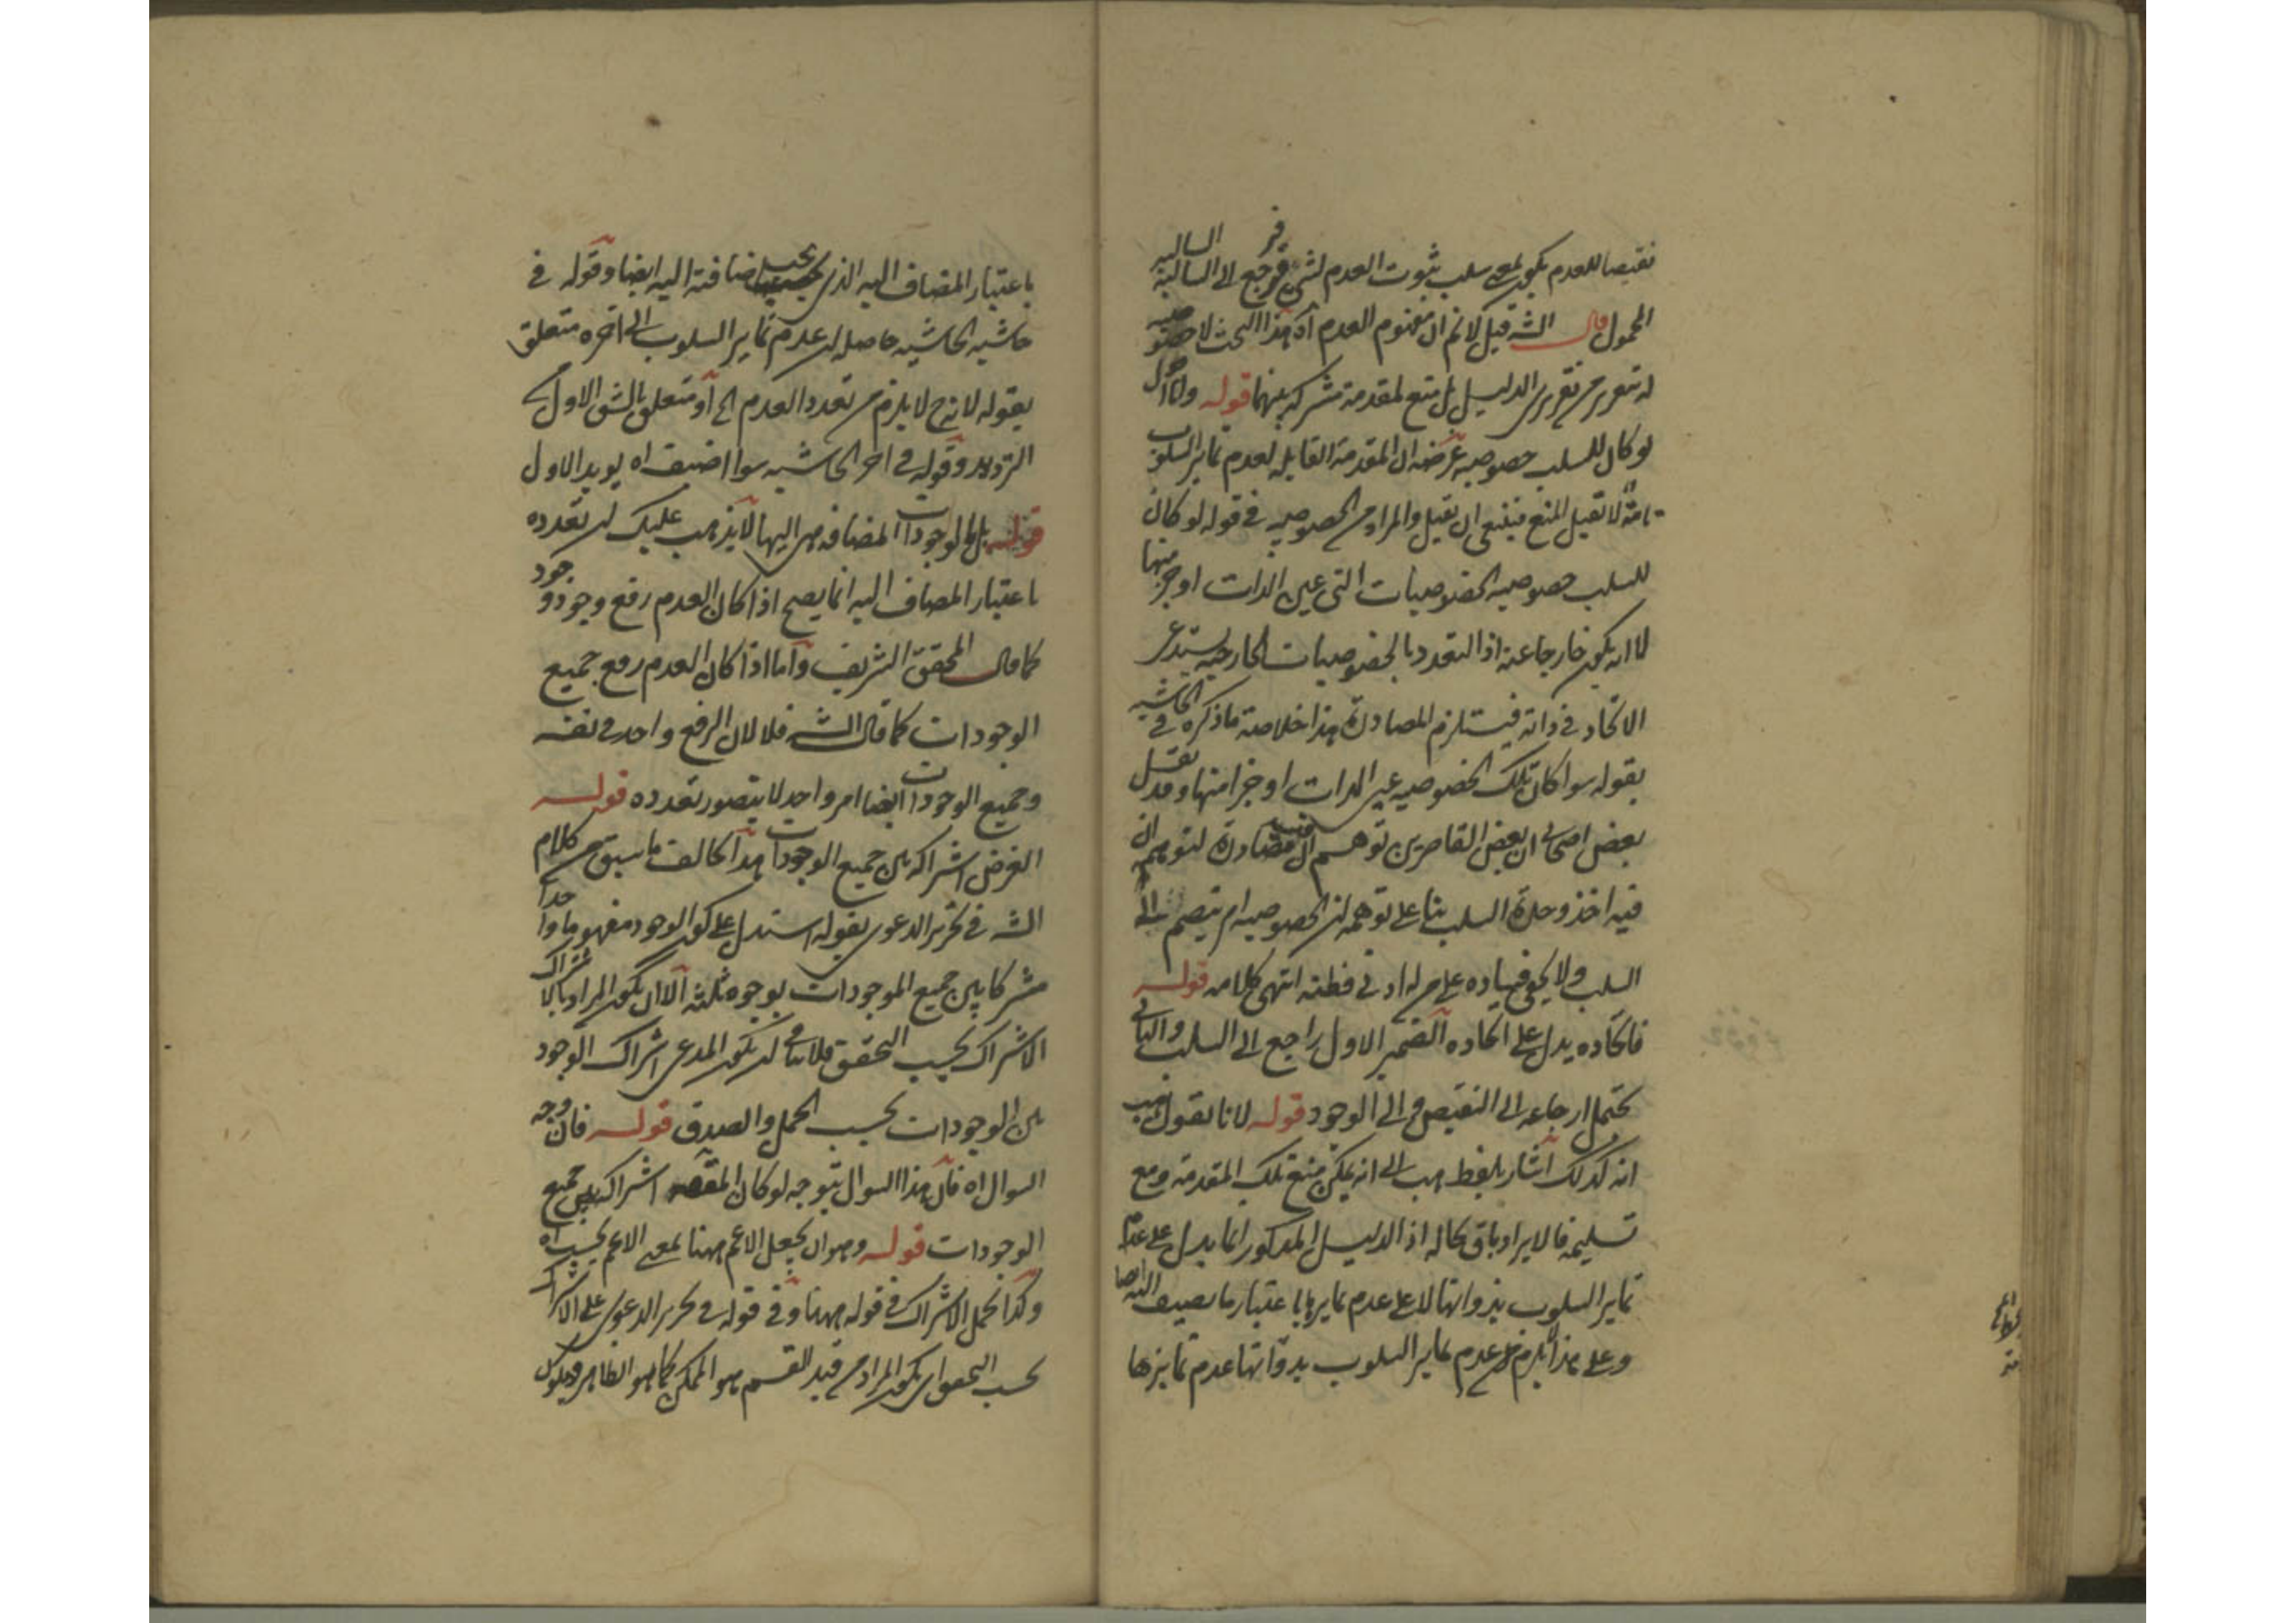 نقيضا للعدم يكون بمعنى سلب ثبوت العدم لشئ فرجع الى السالبة السالبة
المحمول قال الشه قيل لا نم ان مفهوم العدم اه هذا البحث لا خصوصية
له بتقرير من تقريرى الدليل بل منع لمقدمة مشتركة بينهما قوله ولا أقول
لو كان للسلب خصوصية غرضه ان المقدمة القايلة لعدم تمايز السلوب
تامة لا تقبل المنع فينبغى ان تقبل والمراد من الخصوصية فى قوله لو كان
للسلب خصوصية الخصوصيات التى عين الذات او جزء منها
لا ان يكون خارجا عنه اذ التعدد بالخصوصيات الخارجية يستدعى
الاتحاد فى ذاته فيستلزم المصادرة هذا خلاصة ما ذكره فى الحاشية
بقوله سوا كان تلك الخصوصية عين الذات او جزا منها وقد نقل
بعض اصحابى ان بعض القاصرين توهم ان فيه مصادرة لتوهم ان
فيه اخذ وحدة السلب بنا على توهمه ان الخصوصية امر ينضم الى
السلب ولا يخفى فساده على من له ادنى فطنة انتهى كلامه قوله
فاتحاده يدل على اتحاده الضمير الاول راجع الى السلب والثانى
يحتمل ارجاعه الى النقيض والى الوجود قوله لانا نقول هب
انه كذلك اشار بلفظ هب الى انه يمكن منع تلك المقدمة ومع
تسليمه فالايراد باق بحاله اذ الدليل المذكور انما يدل على عدم
تمايز السلوب بذواتها لا على عدم تمايزها باعتبار ما يضيف اليه ايضا
وعلى هذا يلزم من عدم تمايز السلوب بذواتها عدم تمايزها
باعتبار المضاف اليه الذى بحسب اضافته اليه ايضا وقوله فى
حاشية الحاشية حاصله ان عدم تمايز السلوب الى اخره متعلق
بقوله لانه ح لا يلزم من تعدد العدم الخ أو متعلق بالشق الاول من
الترديد وقوله فى اخر الحاشية سوا اضيف اه يويد الاول
قوله بل بالوجودات المضافة هى اليها لا يذهب عليك ان تعدده
باعتبار المضاف اليه انما يصح اذا كان العدم رفع وجود وجود
كما قال المحقق الشريف واما اذا كان العدم رفع جميع
الوجودات كما قال الشه فلا لان الرفع واحد فى نفسه
وجميع الوجودات ايضا امر واحد لا يتصور تعدده قوله
الغرض اشتراكه بين جميع الوجودات هذا يخالف ما سبق من كلام
الشه فى تحرير الدعوى بقوله استدل على كون الوجود مفهوما واحدا
مشتركا بين جميع الموجودات بوجوه ثلثة الا ان يكون المراد بالاشتراك
الاشتراك بحسب التحقق فلا ينافى ان يكون المدعى اشتراك الوجود
بين الوجودات بحسب الحمل والصدق قوله فان وجه
السوال اه فان هذا السوال يتوجه لو كان المقصد اشتراكه بين جميع
الوجودات قوله وهو ان يجعل الاعم ههنا بمعنى الاعم بحسب اه
وكذا يحمل الاشتراك فى قوله ههنا وفى قوله فى تحرير الدعوى على الاشتراك
بحسب التحقق او يكون المراد من قيد القسم هو الممكن كما هو الظاهر فيكون